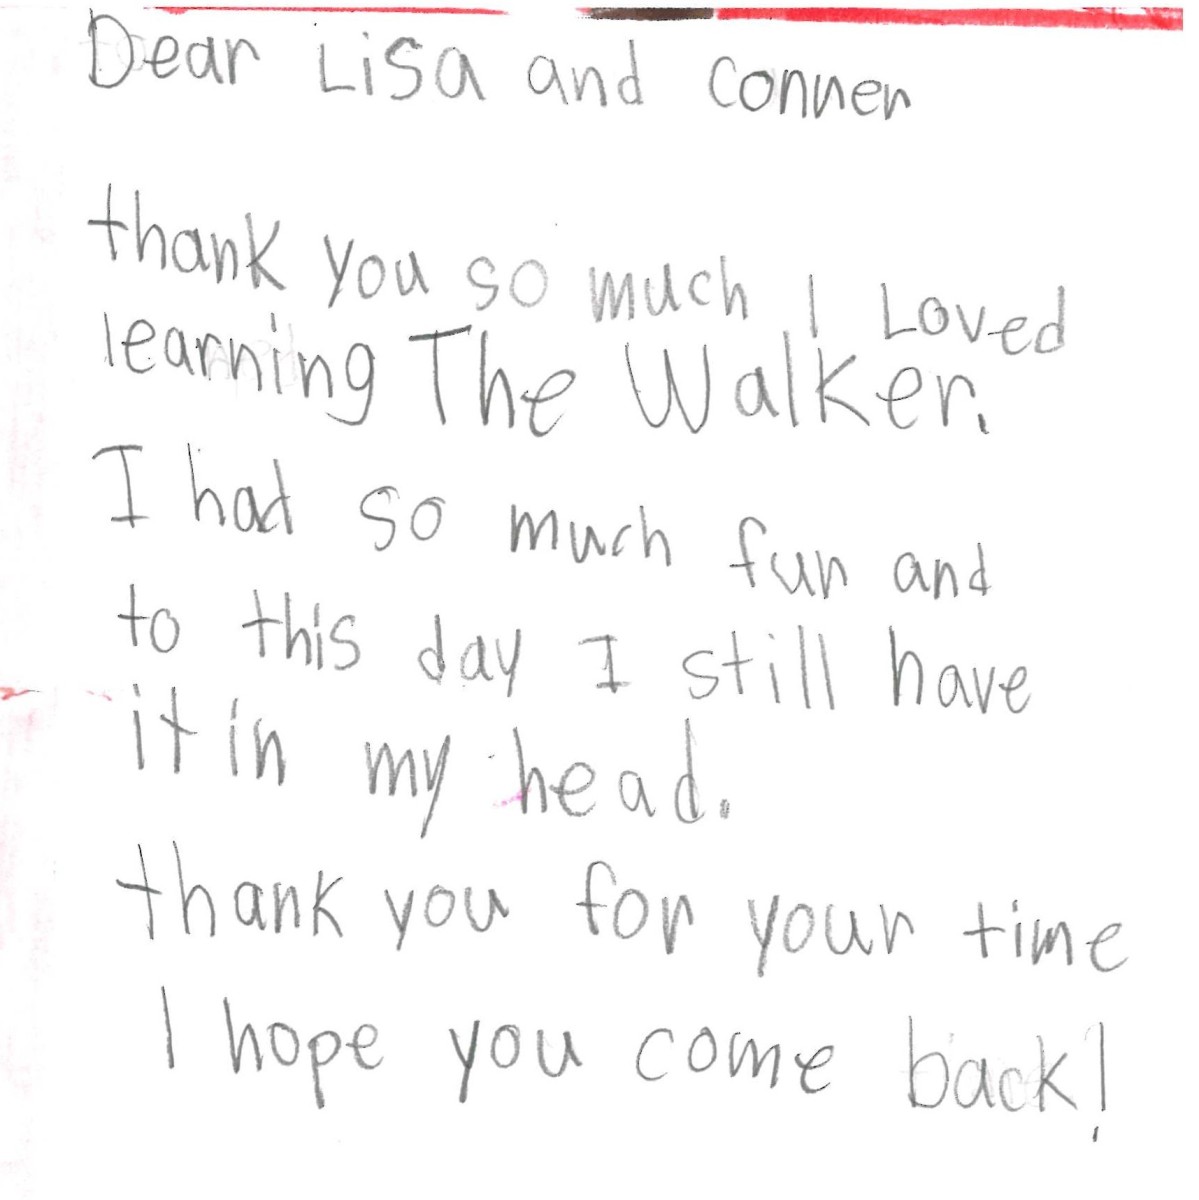 Dear Lisa and Conner
thank you so much I Loved
learning The Walker.
I had so much fun and
to this day I still have
it in my head.
thank you for your time
I hope you come back!